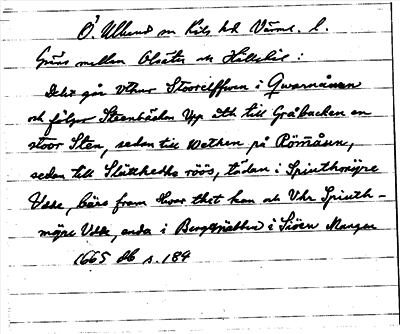 Ö. Ullerud sn Kils hd Värml. l.
Gräns mellan Olsäter och Hillskil :
Dett går uthur Stoorelffven i Qwarnånnen
och fölger Steenbäcken Upp ått till Gråbacken en
stoor Sten, sedan till wethen på Römåssen,
sedan till Slättheths röös, tädan i Spiuthmyre
Udde, bärs fram huar thet kan och Uhr Spiuth-
myre Udde, enda i Bergznäbben i Siöen Mangen
1665 db s. 184